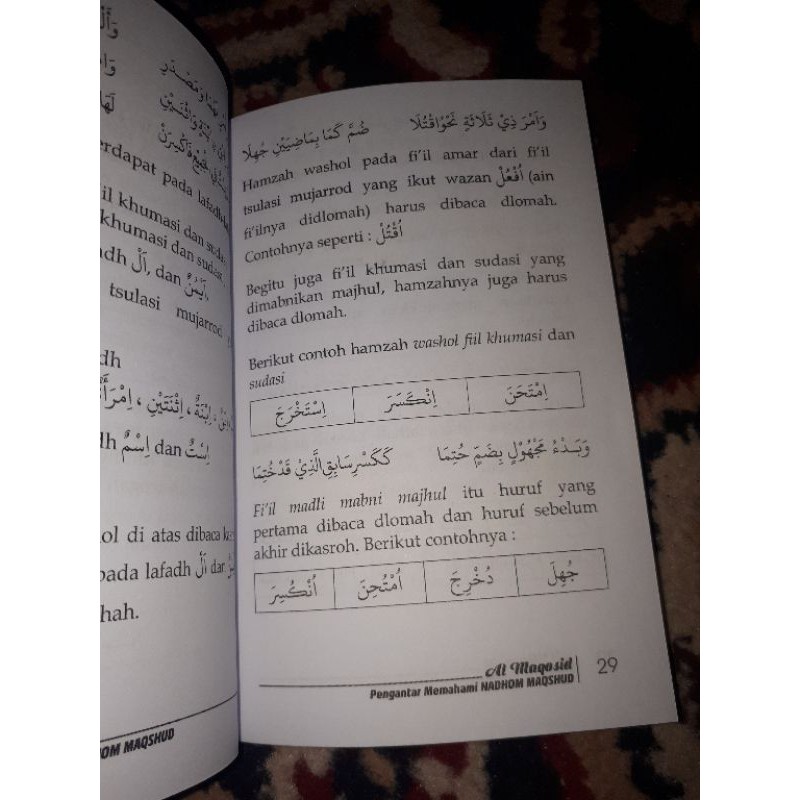 وَأَلْ
وَا
ـهِمَا وَمَصْدَرِ
لَهَا
ـنَةٍ وَاثْنَيْنِ
erdapat pada lafadh
il khumasi dan sudas
khumasi dan sudas
adh اَلْ, dan اَيْمُنُ,
tsulasi mujarrod
dh
اِبْنَةٌ ، اِثْنَتَيْنِ ، اِمْرَأَةٌ
dh اِسْمٌ dan اِسْتٌ
ol di atas dibaca
pada lafadh اَلْ dar
hah.
OM MAQSHUD
وَاَمْرَ ذِيْ ثَلَاثَةٍ نَحْوُ اقْتُلَا ضُمَّ كَمَا بِمَاضِيَيْنِ جُهِلَا
Hamzah washol pada fi'il amar dari fi'il
tsulasi mujarrod yang ikut wazan اُفْعُلْ (ain
fi'ilnya didlomah) harus dibaca dlomah.
Contohnya seperti : اُقْتُلْ
Begitu juga fi'il khumasi dan sudasi yang
dimabnikan majhul, hamzahnya juga harus
dibaca dlomah.
Berikut contoh hamzah washol fiil khumasi dan
sudasi
اِمْتَحَنَ اِنْكَسَرَ اِسْتَخْرَجَ
وَبَدْءُ مَجْهُوْلٍ بِضَمٍّ حُتِمَا كَكَسْرِ سَابِقِ الَّذِيْ قَدْ خُتِمَا
Fi'il madli mabni majhul itu huruf yang
pertama dibaca dlomah dan huruf sebelum
akhir dikasroh. Berikut contohnya :
جُهِلَ دُخْرِجَ اُمْتُحِنَ اُنْكُسِرَ
Al Maqosid
Pengantar Memahami NADHOM MAQSHUD
29